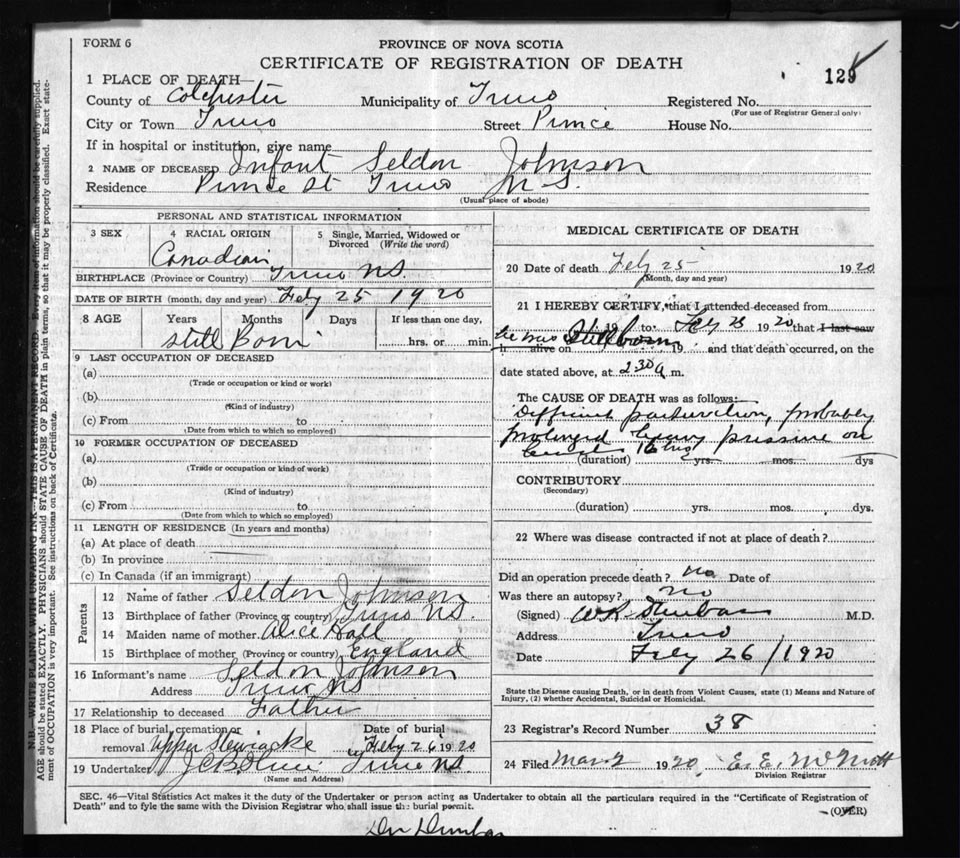 FORM 6
PROVINCE OF NOVA SCOTIA
CERTIFICATE OF REGISTRATION OF DEATH
129
1 PLACE OF DEATH—
County of Colchester Municipality of Truro Registered No.
(For use of Registrar General only)
City or Town Truro Street Prince House No.
If in hospital or institution, give name
2 NAME OF DECEASED Infant Seldon Johnson
Residence Prince St Truro N.S.
(Usual place of abode)
PERSONAL AND STATISTICAL INFORMATION
3 SEX 4 RACIAL ORIGIN 5 Single, Married, Widowed or Divorced (Write the word)
Canadian
BIRTHPLACE (Province or Country) Truro N.S.
DATE OF BIRTH (month, day and year) Feby 25 1920
8 AGE Years Months Days If less than one day,
Still Born hrs. or min.
9 LAST OCCUPATION OF DECEASED
(a)
(Trade or occupation or kind or work)
(b)
(Kind of industry)
(c) From to
(Date from which to which so employed)
10 FORMER OCCUPATION OF DECEASED
(a)
(Trade or occupation or kind of work)
(b)
(Kind of industry)
(c) From to
(Date from which to which so employed)
11 LENGTH OF RESIDENCE (In years and months)
(a) At place of death
(b) In province
(c) In Canada (if an immigrant)
Parents
12 Name of father Seldon Johnson
13 Birthplace of father (Province or country) Truro N.S.
14 Maiden name of mother Alice Hall
15 Birthplace of mother (Province or country) England
16 Informant's name Seldon Johnson
Address Truro NS
17 Relationship to deceased Father
18 Place of burial, cremation or removal Upper Stewiacke Date of burial Feby 26 1920
19 Undertaker Truro N.S.
(Name and Address)
MEDICAL CERTIFICATE OF DEATH
20 Date of death Feby 25 1920
(Month, day and year)
21 I HEREBY CERTIFY, that I attended deceased from
19 to Feby 25 1920 that I last saw
h alive on Stillborn 19 and that death occurred, on the
date stated above, at 2.30 a m.
The CAUSE OF DEATH was as follows:—
Difficult parturition, probably
prolonged heavy pressure on
(duration) yrs. mos. dys
CONTRIBUTORY
(Secondary)
(duration) yrs. mos. dys.
22 Where was disease contracted if not at place of death?
Did an operation precede death? no Date of
Was there an autopsy? no
(Signed) W R Dunbar M.D.
Address Truro
Date Feby 26/1920
State the Disease causing Death, or in death from Violent Causes, state (1) Means and Nature of
Injury, (2) whether Accidental, Suicidal or Homicidal.
23 Registrar's Record Number 38
24 Filed Mar 2 1920 E. E. McNutt
Division Registrar
SEC. 46—Vital Statistics Act makes it the duty of the Undertaker or person acting as Undertaker to obtain all the particulars required in the "Certificate of Registration of
Death" and to fyle the same with the Division Registrar who shall issue the burial permit.
(OVER)
Dr Dunbar
N.B. WRITE PLAINLY WITH UNFADING INK—THIS IS A PERMANENT RECORD. Every item of information should be carefully supplied.
AGE should be stated EXACTLY. PHYSICIANS should STATE CAUSE OF DEATH in plain terms, so that it may be properly classified. Exact state-
ment of OCCUPATION is very important. See instructions on back of Certificate.